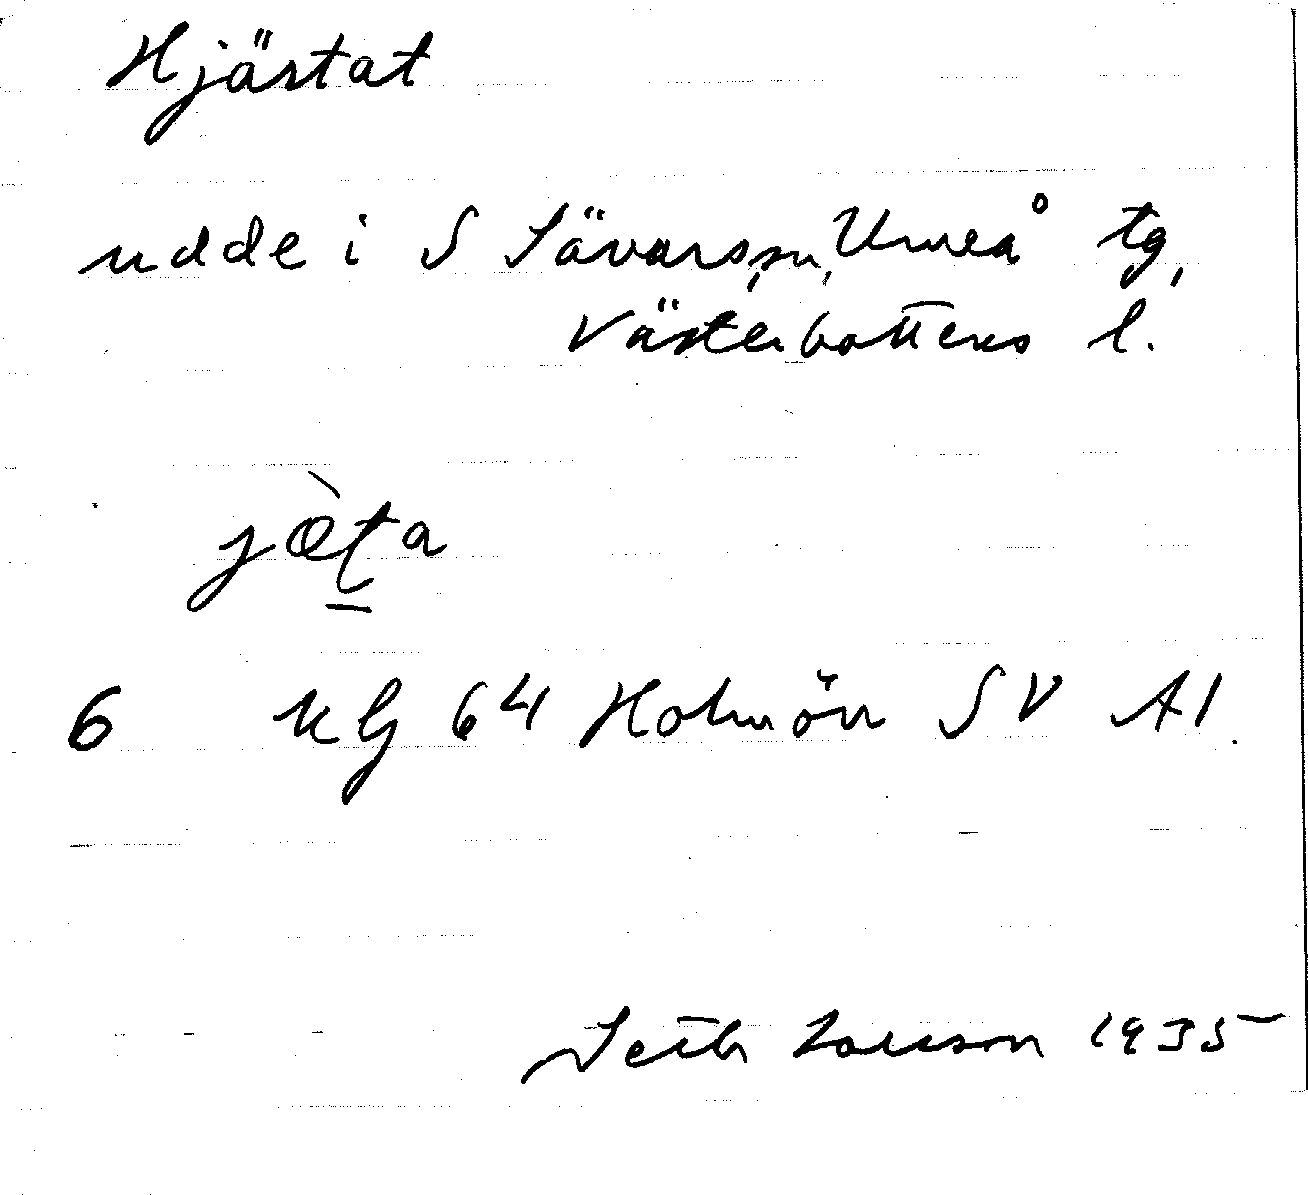 Hjärtat
udde i S Sävars sn, Umeå tg,
Västerbottens l.
jæ̀ta
6 klj 64 Holmön SV A1.
Seth Larsson 1935